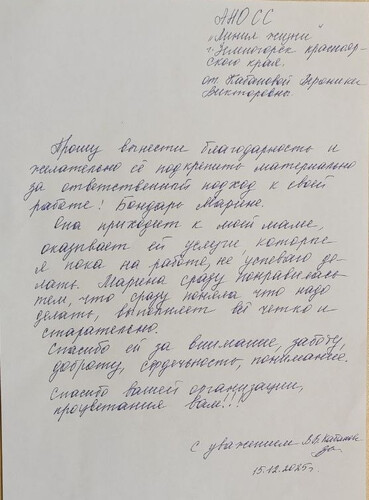 АНО СС
"Линия жизни"
г. Зеленогорск краснояр-
ского края.
от Кабановой Вероники
Викторовны.
Прошу вынести благодарность и
желательно её подкрепить материально
за ответственный подход к своей
работе! Бондарь Марине.
Она приходит к моей маме,
оказывает ей услуги, которые
я пока на работе, не успеваю де-
лать. Марина сразу понравилась
тем, что сразу поняла что надо
делать, выполняет всё четко и
старательно.
Спасибо ей за внимание, заботу,
доброту, сердечность, понимание.
Спасибо вашей организации,
процветания Вам!!!
с уважением В.В. Кабанова
15.12.2025г.